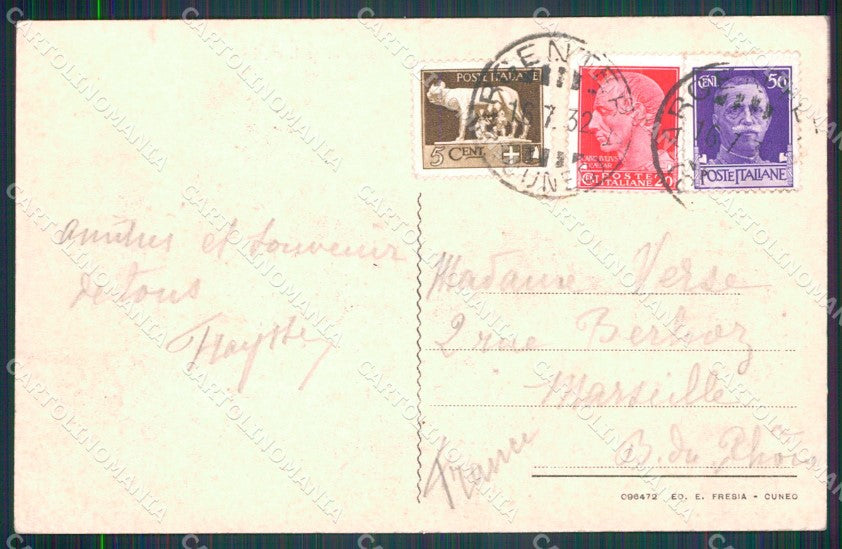 POSTE ITALIANE
5 CENT.
POSTE ITALIANE 20
CENT 50
POSTE ITALIANE
ARGENTERA
16.7.32
CUNEO
amitiés et souvenir
de tous
Madame Verse
2 rue Berlioz
Marseille
B. du Rhône
France
096472 ED. E. FRESIA - CUNEO
CARTOLINOMANIA